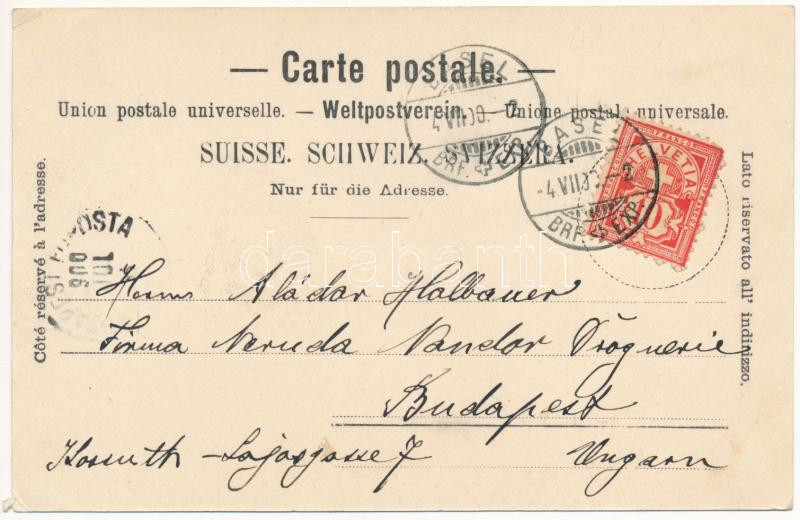 — Carte postale. —
Union postale universelle. — Weltpostverein. — Unione postale universale.
SUISSE. SCHWEIZ. SVIZZERA.
Nur für die Adresse.
Côté réservé à l'adresse.
Lato riservato all' indirizzo.
BASEL
4 VII 00. - 2
BRF. EXP.
BASEL
-4 VII 00. - 2
BRF. EXP.
FRANCO
HELVETIA
10
POSTA
darabanth
Herrn Aládár Halbauer
Firma Neruda Nandor Drognerie
Budapest
Kossuth-Lajosgasse 7 Ungarn